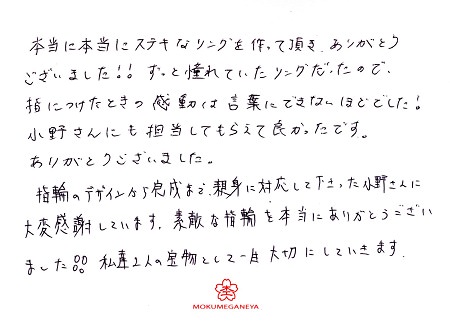 本当に本当にステキなリングを作って頂き、ありがとう
ございました!! ずっと憧れていたリングだったので、
指につけたときの感動は言葉にできないほどでした!
小野さんにも担当してもらえて良かったです。
ありがとうございました。
指輪のデザインから完成まで、親身に対応して下さった小野さんに
大変感謝しています。素敵な指輪を本当にありがとうござい
ました!! 私達2人の宝物として一生大切にしていきます。
MOKUMEGANEYA